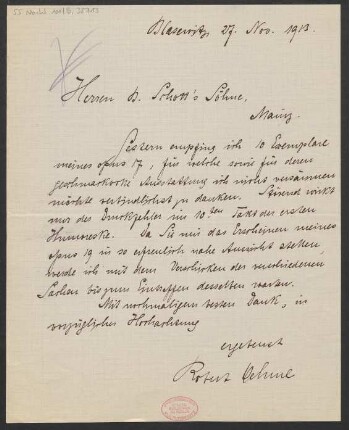 Blasewitz, 27. Nov. 1913.
Herren B. Schott's Söhne,
Mainz
Gestern empfing ich 10 Exemplare
meines opus 17, für welche sowie für deren
geschmackvolle Ausstattung ich nicht versäumen
möchte verbindlichst zu danken. Störend wirkt
nur der Druckfehler im 10ten Takt der ersten
Humoreske. Da Sie mir das Erscheinen meines
opus 19 in so erfreulich nahe Aussicht stellen
werde ich mit dem Verschicken der verschiedenen
Sachen bis zum Eintreffen desselben warten.
Mit nochmaligem besten Dank, in
vorzüglicher Hochachtung
ergebenst
Robert Oehme